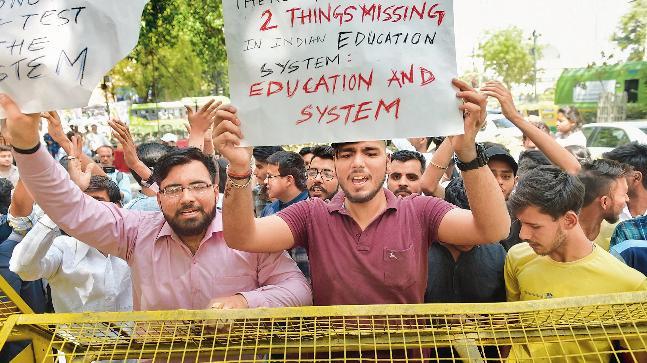 TEST
THE
SYSTEM
2 THINGS MISSING
IN INDIAN EDUCATION
SYSTEM:
EDUCATION AND
SYSTEM